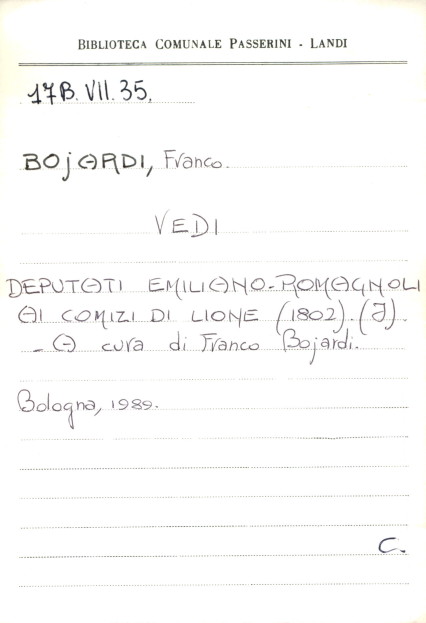 BIBLIOTECA COMUNALE PASSERINI - LANDI
17B. VII. 35.
BOJARDI, Franco.
VEDI
DEPUTATI EMILIANO-ROMAGNOLI
AI COMIZI DI LIONE (1802). (I).
- A cura di Franco Bojardi.
Bologna, 1989.
C.